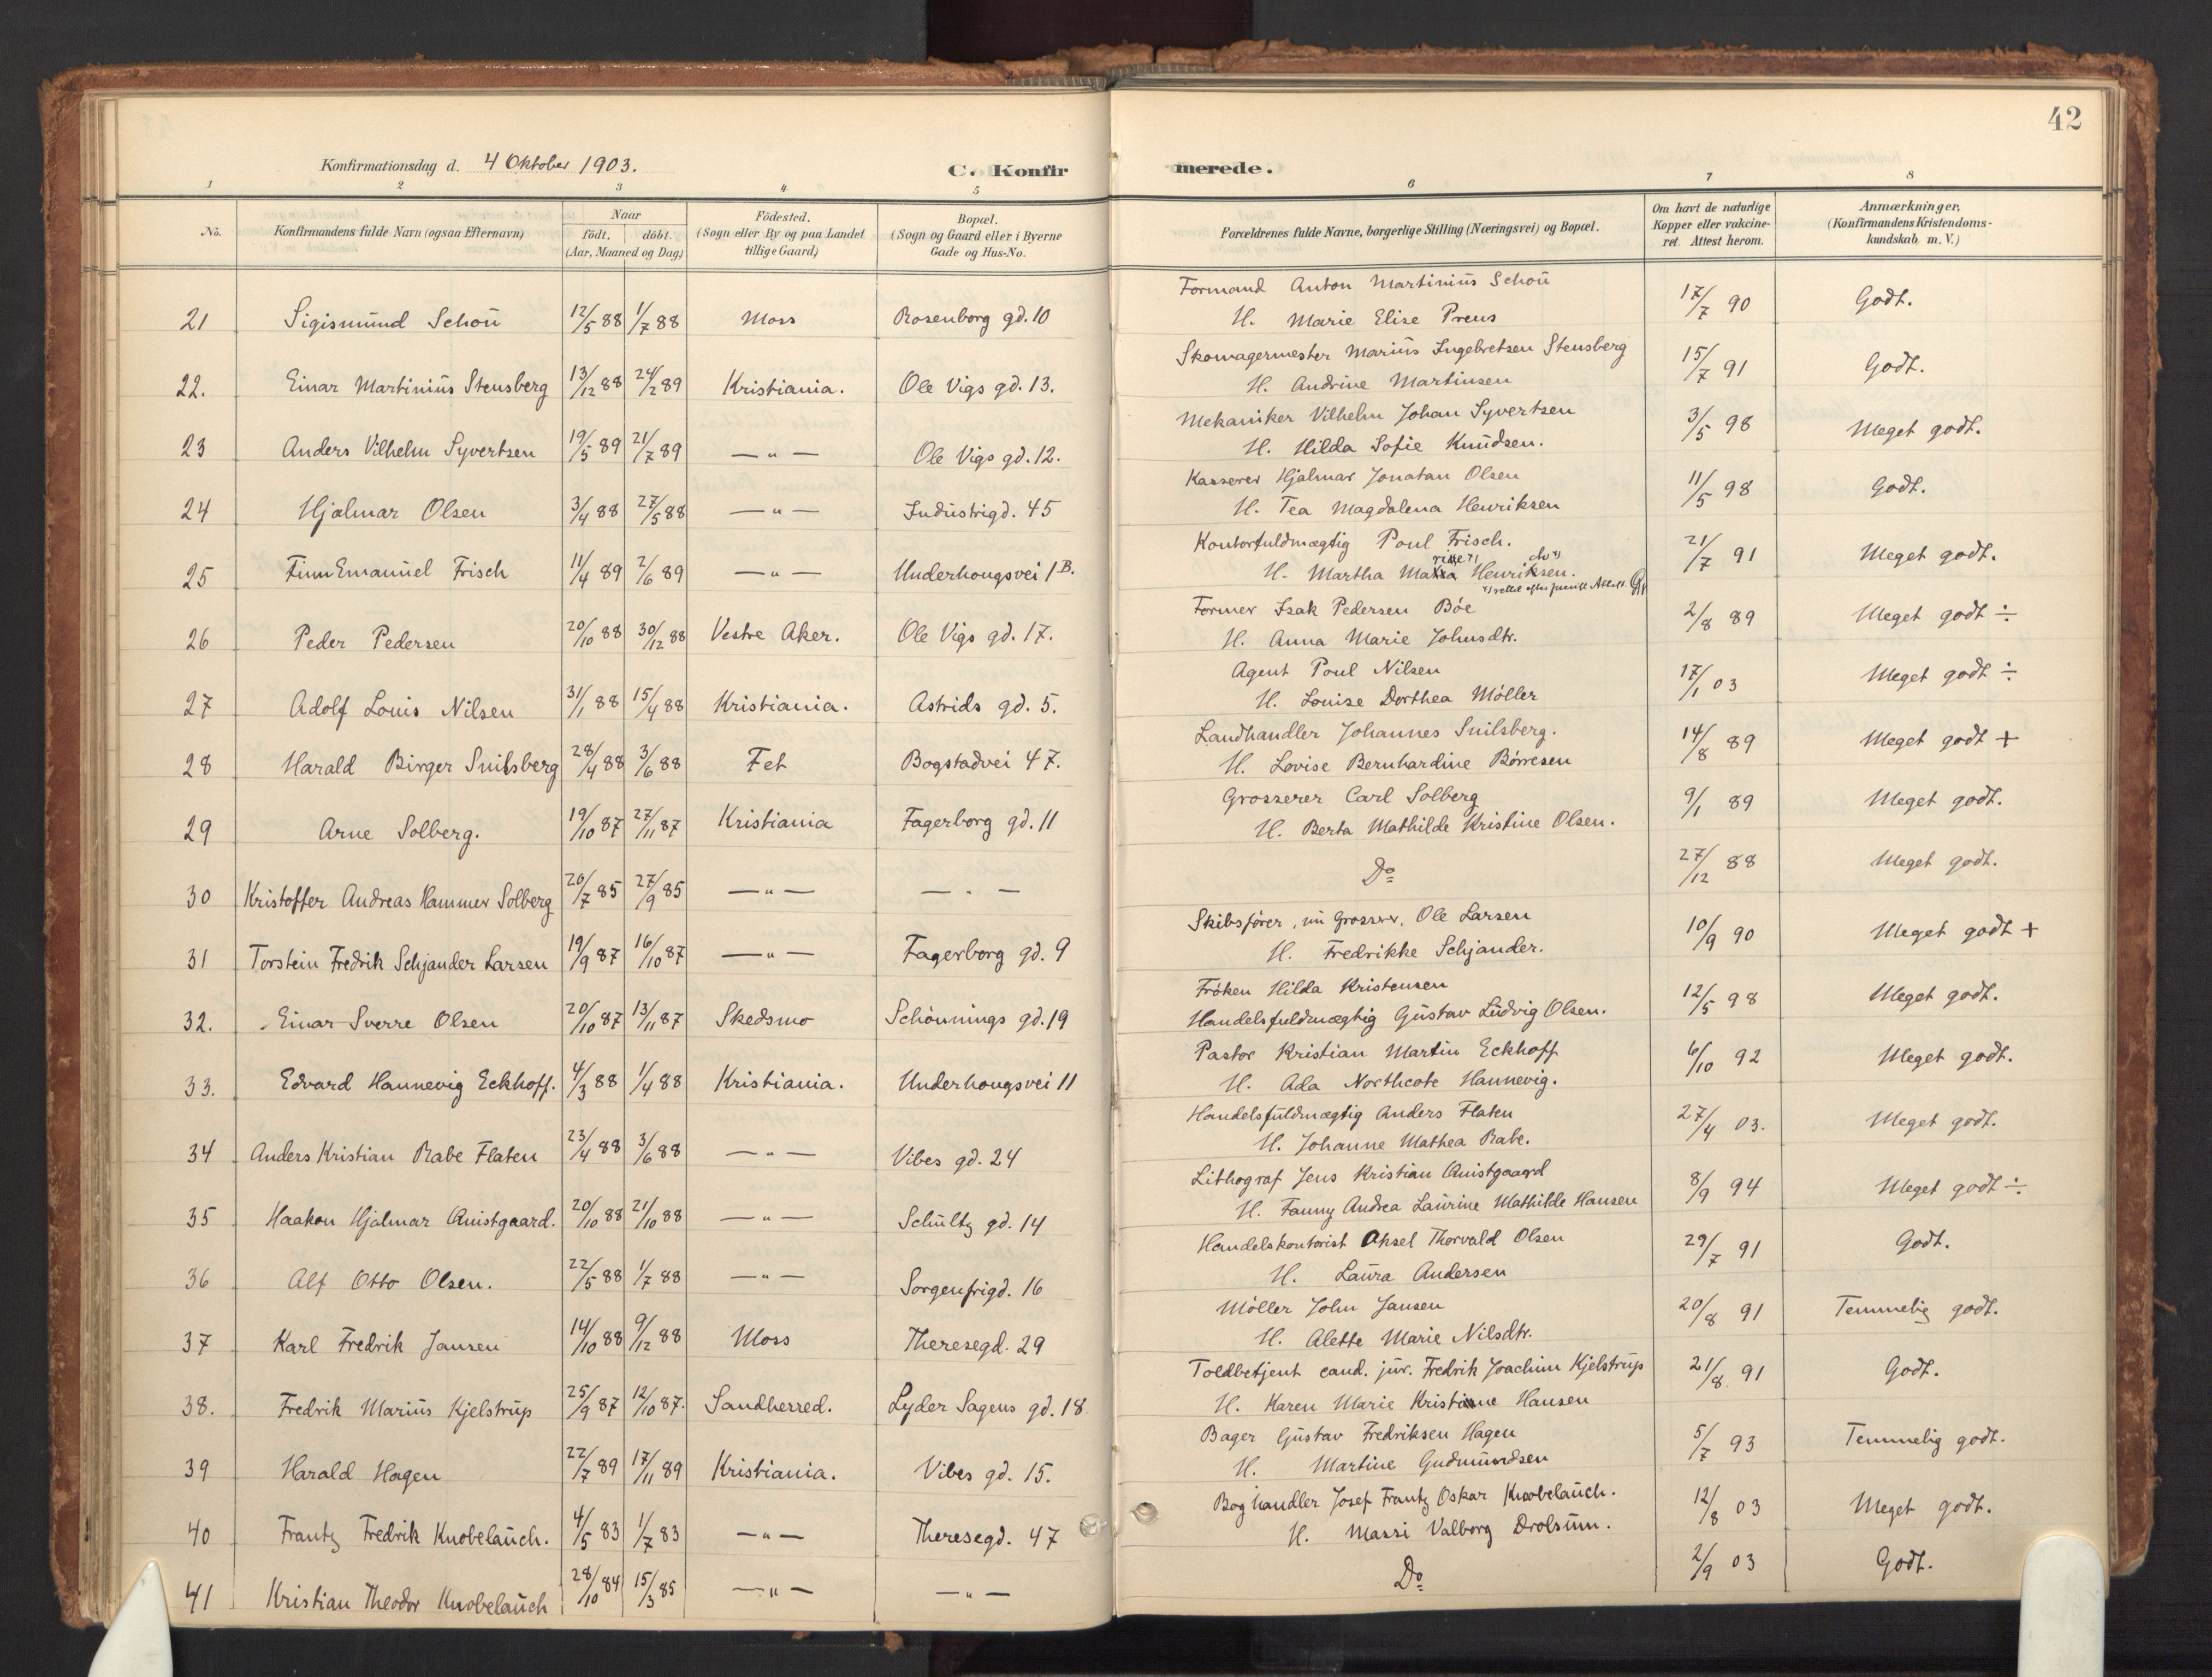 42
Konfirmationsdag d. 4 Oktober 1903.
C. Konfirmerede.
1 2 3 4 5 6 7 8
No. Konfirmandens fulde Navn (ogsaa Efternavn) Naar födt, döbt. (Aar, Maaned og Dag) Födested. (Sogn eller By og paa Landet tillige Gaard) Bopæl. (Sogn og Gaard eller i Byerne Gade og Hus-No. Forældrenes fulde Navne, borgerlige Stilling (Næringsvei) og Bopæl. Om havt de naturlige Kopper eller vakcineret. Attest herom. Anmærkninger, (Konfirmandens Kristendomskundskab, m. V.)
21 Sigismund Schou 12/5 88 1/7 88 Moss Rosenborg gd. 10 Formand Anton Martinius Schou 17/7 90 Godt.
H. Marie Elise Preus
22. Einar Martinius Stensberg 13/12 88 24/2 89 Kristiania. Ole Vigs gd. 13. Skomagermester Marius Ingebretsen Stensberg 15/7 91 Godt.
H. Andrine Martinsen
23 Anders Vilhelm Syvertsen 19/5 89 21/7 89 — " — Ole Vigs gd. 12. Mekaniker Vilhelm Johan Syvertsen 3/5 98 Meget godt.
H. Hilda Sofie Knudsen.
24 Hjalmar Olsen 3/4 88 27/5 88 — " — Industrigd. 45 Kasserer Hjalmar Jonatan Olsen 11/5 98 Godt.
H. Tea Magdalena Henriksen
25 Finn Emanuel Frisch 11/4 89 2/6 89 — " — Underhougsvei 1 B. Kontorfuldmægtig Poul Frisch. 21/7 91 Meget godt.
H. Martha Henriksen.
26 Peder Pedersen 20/10 88 30/12 88 Vestre Aker. Ole Vigs gd. 17. Former Isak Pedersen Böe 2/8 89 Meget godt ÷
H. Anna Marie Johnsdtr.
27 Adolf Louis Nilsen 31/1 88 15/4 88 Kristiania. Astrids gd. 5. Agent Poul Nilsen 17/1 03 Meget godt ÷
H. Louise Dorthea Möller
28 Harald Birger Snilsberg 28/4 88 3/6 88 Fet Bogstadvei 47. Landhandler Johannes Snilsberg. 14/8 89 Meget godt +
H. Lovise Bernhardine Börresen
29 Arne Solberg. 19/10 87 27/11 87 Kristiania Fagerborg gd. 11 Grosserer Carl Solberg 9/1 89 Meget godt.
H. Berta Mathilde Kristine Olsen.
30 Kristoffer Andreas Hammer Solberg 26/7 85 27/9 85 — " — — " — Do 27/12 88 Meget godt.
31 Torstein Fredrik Schjander Larsen 19/9 87 16/10 87 — " — Fagerborg gd. 9 Skibsfører, nu grosser, Ole Larsen 10/9 90 Meget godt +
H. Fredrikke Schjander.
32. Einar Sverre Olsen 20/10 87 13/11 87 Skedsmo Schönnings gd. 19 Fröken Hilda Kristensen 12/5 98 Meget godt.
Handelsfuldmægtig Gustav Ludvig Olsen.
33. Edvard Hannevig Eckhoff. 4/3 88 1/4 88 Kristiania. Underhougsvei 11 Pastor Kristian Martin Eckhoff 6/10 92 Meget godt.
H. Ada Northcote Hannevig.
34 Anders Kristian Rabe Flaten 23/4 88 3/6 88 — " — Vibes gd. 24 Handelsfuldmægtig Anders Flaten 27/4 03. Meget godt.
H. Johanne Mathea Rabe.
35 Haakon Hjalmar Quistgaard. 20/10 88 21/10 88 — " — Schultz gd. 14 Lithograf Jens Kristian Quistgaard 8/9 94 Meget godt ÷
H. Fanny Andrea Laurine Mathilde Hansen
36 Alf Otto Olsen. 22/5 88 1/7 88 — " — Sorgenfrigd. 16 Handelskontorist Aksel Thorvald Olsen 29/7 91 Godt.
H. Laura Andersen
37 Karl Fredrik Jansen 14/10 88 9/12 88 Moss Theresegd. 29 Möller John Jansen 20/8 91 Temmelig godt.
H. Alette Marie Nilsdtr.
38. Fredrik Marius Kjelstrup 25/9 87 12/10 87. Sandherred. Lyder Sagens gd. 18 Toldbetjent cand. jur. Fredrik Joachim Kjelstrup 21/8 91 Godt.
H. Karen Marie Kristiane Hansen
39 Harald Hagen 22/7 89 17/11 89 Kristiania. Vibes gd. 15. Bager Gustav Fredriksen Hagen 5/7 93 Temmelig godt.
H. Martine Gudmundsen
40 Frantz Fredrik Knobelauch. 4/5 83 1/7 83 — " — Theresegd. 47 Boghandler Josef Frantz Oskar Knobelauch. 12/8 03 Meget godt.
H. Massi Valborg Drolsum.
41 Kristian Theodor Knobelauch 28/10 84 15/3 85 — " — — " — Do 2/9 03 Godt.